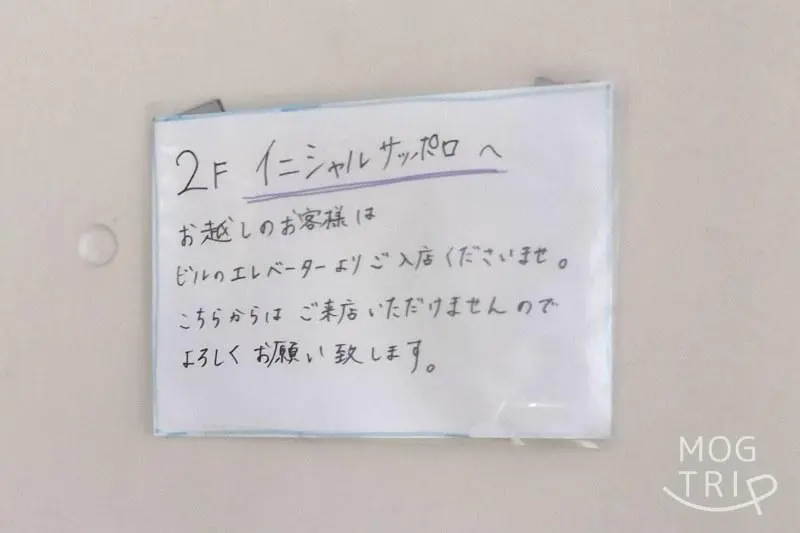 2F イニシャルサッポロ へ
お越しのお客様は
ビルのエレベーターよりご入店くださいませ。
こちらからは ご来店いただけませんので
よろしく お願い致します。
MOG
TRIP